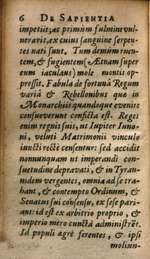 6 DE SAPIENTIA
impetrauit; ac primum fulmine vulnerauit; ex cuius sanguine serpentes
nati sunt. Tum demùm ruentem,
& fugientem, Ætnam super
eum iaculans, mole montis oppressit.
Fabula de fortunâ Regum
variâ & Rebellionibus quæ in
Monarchiis quandoque euenire
consueuerunt conficta est. Reges
enim regnis suis, ut Iupiter Iunoni,
veluti Matrimonii vinculo
iuncti rectè censentur: sed accidit
nonnunquam ut imperandi consuetudine
deprauati, & in Tyrannidem
vergentes, omnia ad se trahant,
& contempto Ordinum, &
Senatus sui consensu, ex sese pariant:
id est ex arbitrio proprio, &
imperio mero cuncta administrent.
Id populi ægrè ferentes, & ipsi
moliun-